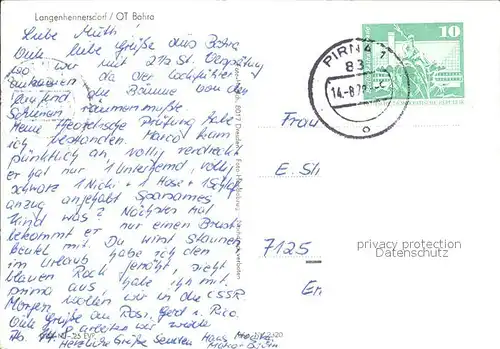 Langenhennersdorf / OT Bahra
Liebe Mutti
Viele liebe Grüße aus Bahra
wo wir mit 2½ St. Verspätung
ankamen da der Lochpfeifer
laufend die Bäume von den
Schienen räumen mußte.
Meine theoretische Prüfung habe
ich bestanden. Marco kam
pünktlich an, völlig verdreckt
er hat nur 1 Unterhemd, völlig
schwarz 1 Nicki + 1 Hose + 1 Schlaf
anzug angehabt Sparsames
Kind was? Nächstes mal
bekommt er nur einen Brust-
beutel mit. Du wirst staunen
im Urlaub habe ich den
blauen Rock genäht, sieht
prima aus habe ihn mit.
Morgen wollen wir in die CSSR.
Viele Grüße an Rosi, Gerd u. Rico.
Ab arbeiten wir wieder
Herzliche Grüße senden Hans
PIRNA 1
83
14.-8.79
10
Frau
E. Sti
7125
Er
privacy protection
Datenschutz